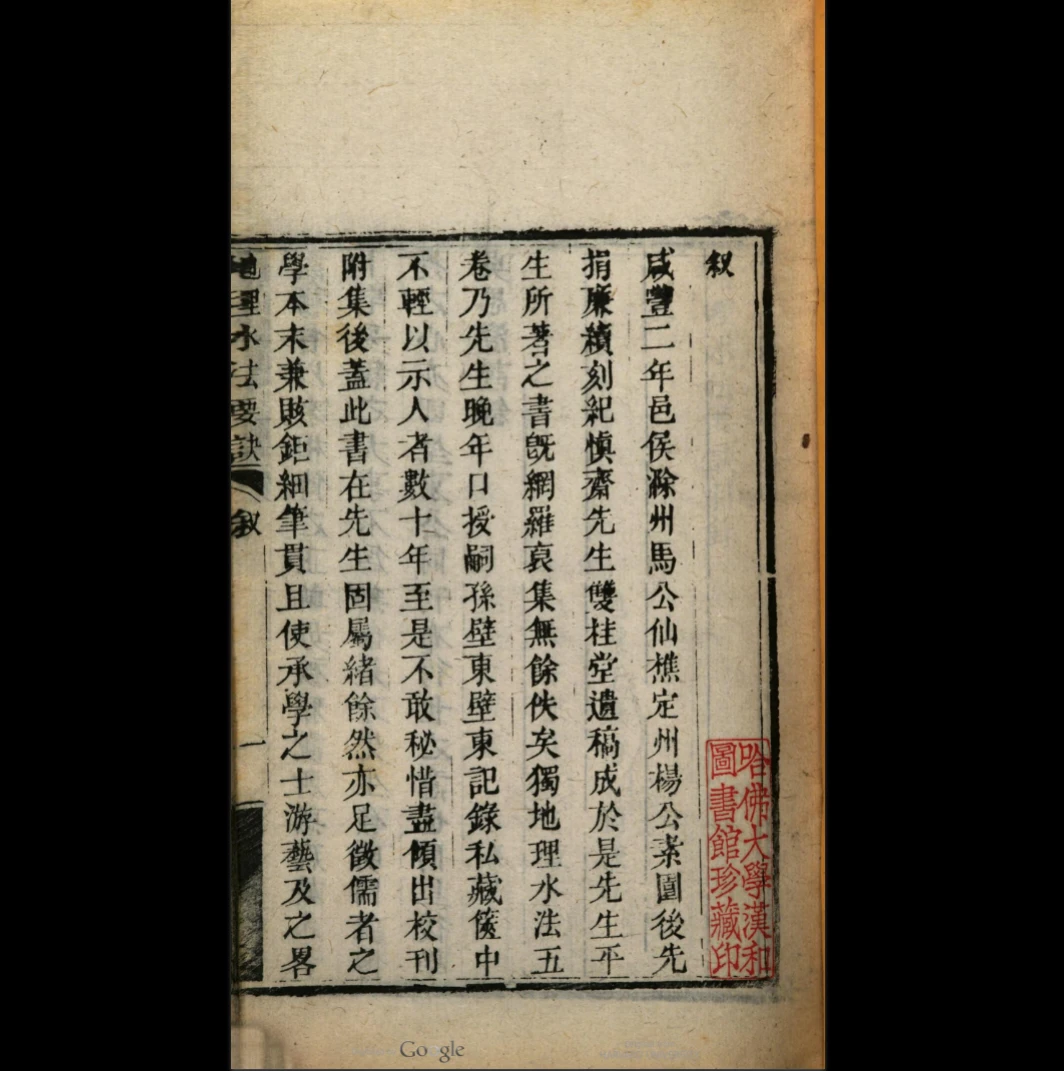 叙
咸豐二年邑侯滁州馬公仙樵定州楊公素園後先
捐廉續刻紀慎齋先生雙桂堂遺稿成於是先生平
生所著之書旣網羅裒集無餘佚矣獨地理水法五
卷乃先生晚年口授嗣孫壁東壁東記錄私藏篋中
不輕以示人者數十年至是不敢秘惜盡傾出校刊
附集後蓋此書在先生固屬緒餘然亦足徵儒者之
學本末兼賅鉅細畢貫且使承學之士游藝及之畧
地理水法要訣 叙 一
哈佛大學漢和
圖書館珍藏印
Google